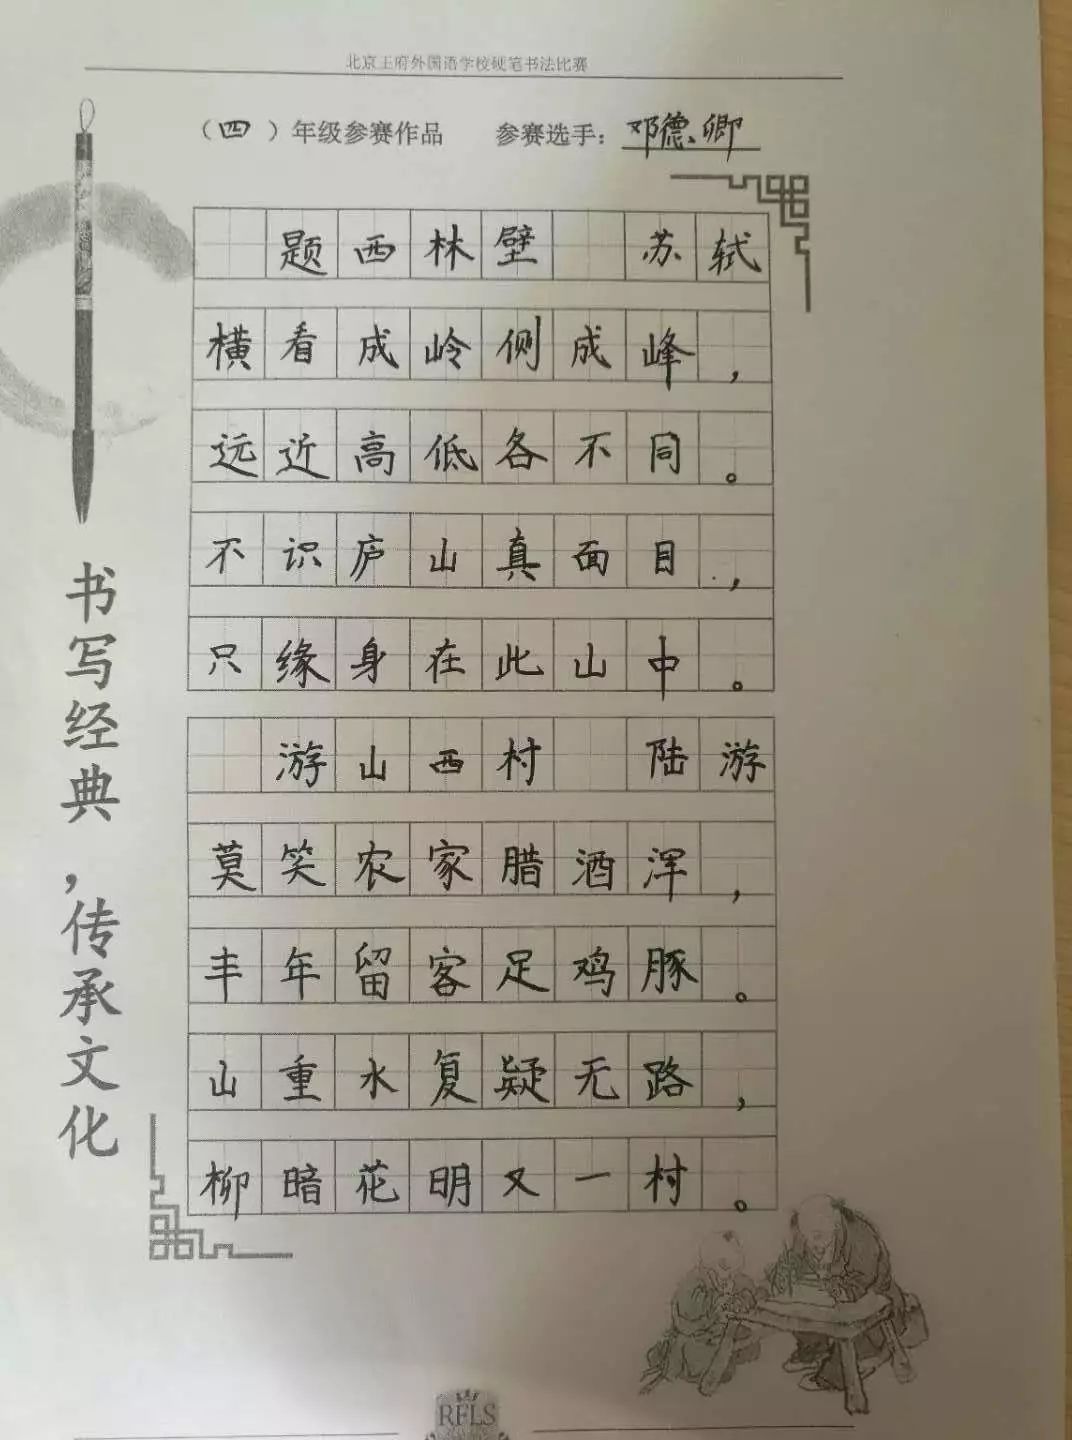 北京王府外国语学校硬笔书法比赛
（四）年级参赛作品 参赛选手：邓德卿
题西林壁 苏轼
横看成岭侧成峰，
远近高低各不同。
不识庐山真面目，
只缘身在此山中。
游山西村 陆游
莫笑农家腊酒浑，
丰年留客足鸡豚。
山重水复疑无路，
柳暗花明又一村。
书写经典，传承文化
RFLS